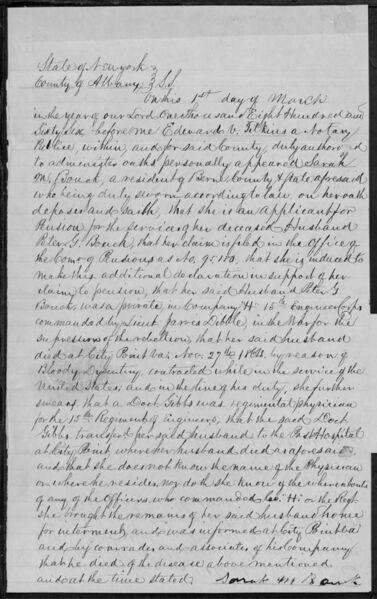 State of New York }
County of Albany } S.S.
On this 1st day of March
in the year of our Lord One thousand Eight Hundred and
Sixty Six before me Edward V. Filkins a Notary
Public, within, and for said County, duly authorized
to administer oaths personally appeared Sarah
M. Bouck, a resident of Berne County & state aforesaid
who being duly sworn according to law, on her oath
deposes and saith, that she is an applicant for
Pension for the services of her deceased Husband
Peter G. Bouck, that her claim is filed in the Office of
the Com of Pensions as No. that she is induced to
make this additional declaration in support of her
claim to pension, that her said Husband Peter G
Bouck, was a private in Company "H" 15th Engineer Corps
commanded by Lieut James Dibble, in the War for the
supression of the rebellion, that her said husband
died at City Point Va, Nov. 27th 1864, by reason of
Bloody Dysentry, contracted while in the service of the
United States, and in the line of his duty, she further
swears that a Doct Gibbs was regimental physician
for the 15th Regiment of Engineers, that the said Doct
Gibbs transfer her said husband to the Post Hospital
at City Point, where her husband died as aforesaid
and that she does not know the name of the Physician
or where he resides, nor doth she know of the whereabouts
of any of the Officers who commanded Co. "H" or the Regt
She brought the remains of her said husband home
for interment, and was informed at City Point Va
and by comrades and associates of his Company
that he died of the disease above mentioned
and at the time stated. Sarah M Bouck